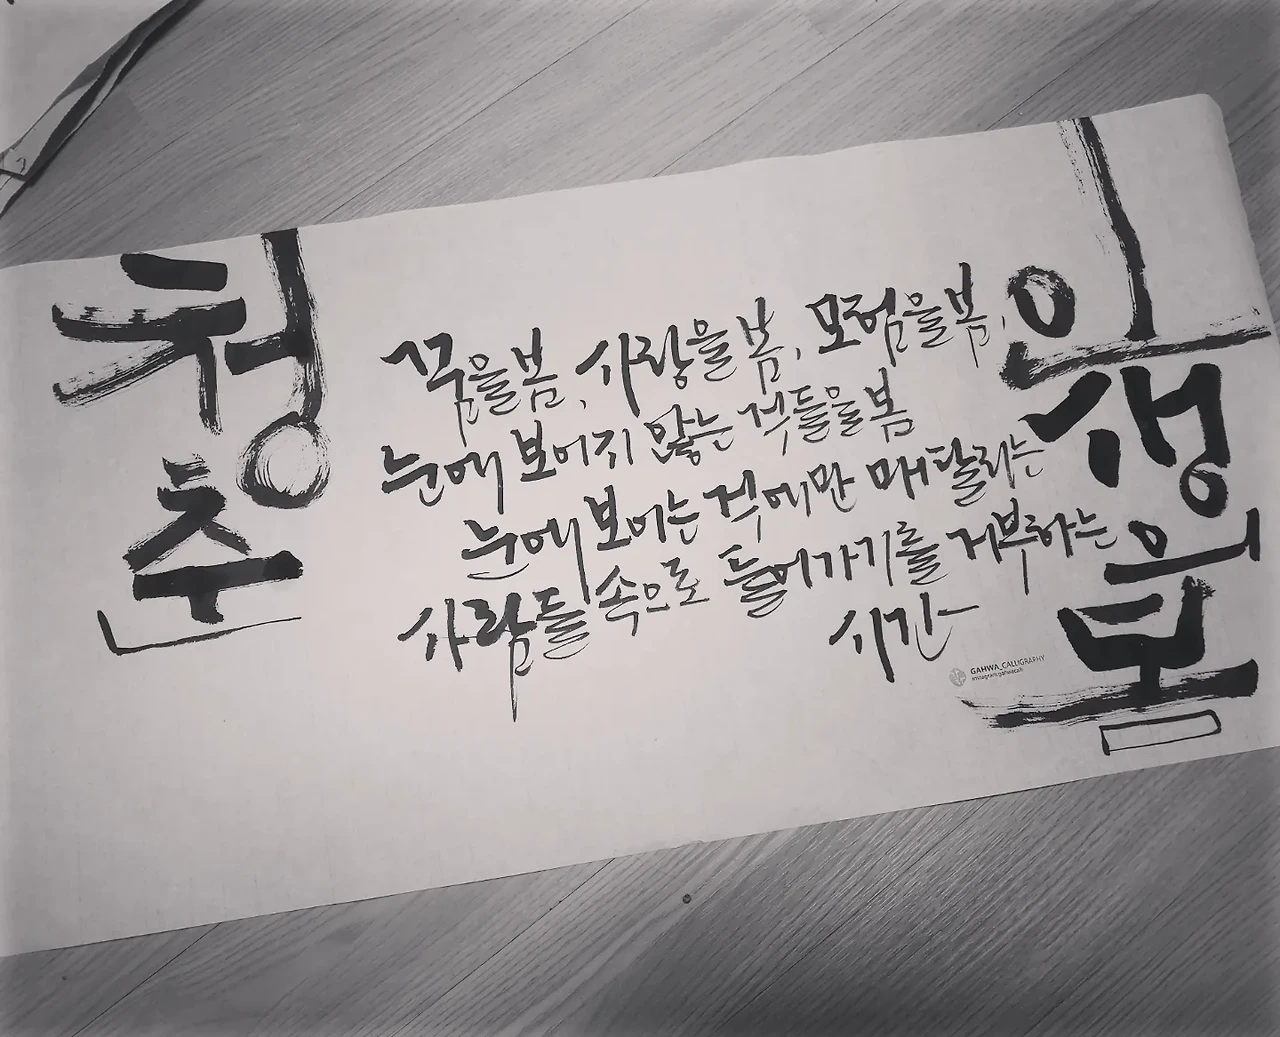 청춘
꿈을 봄, 사랑을 봄, 모험을 봄,
눈에 보이지 않는 것들을 봄
눈에 보이는 것에만 매달리는
사람들 속으로 들어가기를 거부하는
시간
인생의 봄
GAHWA_CALLIGRAPHY
instagram.gahwacalli